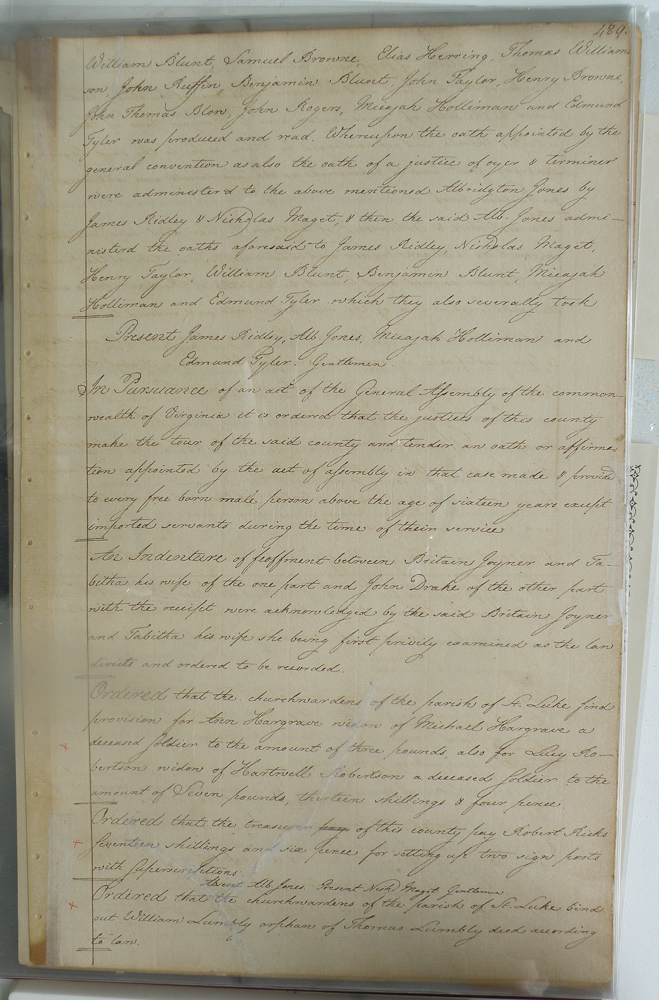 489.
William Blunt, Samuel Browne, Elias Herring, Thomas William
son, John Ruffin, Benjamin Blunt, John Taylor, Henry Browne,
John Thomas Blow, John Rogers, Micajah Holliman and Edmund
Tyler was produced and read. Whereupon the oath appointed by the
general convention as also the oath of a justice of oyer & terminer
were administerd to the above mentioned Albridgton Jones by
James Ridley & Nicholas Maget, & then the said Alb. Jones admi-
nisterd the oaths aforesaid to James Ridley, Nicholas Maget,
Henry Taylor, William Blunt, Benjamin Blunt, Micajah
Holliman and Edmund Tyler which they also severally took
Present James Ridley, Alb. Jones, Micajah Holliman and
Edmund Tyler. Gentlemen
In Pursuance of an act of the General Assembly of the common-
wealth of Virginia it is ordered that the justices of this county
make the tour of the said county and tender an oath or affirma
tion appointed by the act of assembly in that case made & provid
to every free born male person above the age of sixteen years except
imported servants during the time of their service
An Indenture of feoffment between Britain Joyner and Ta-
bitha his wife of the one part and John Drake of the other part
with the receipt were acknowledged by the said Britain Joyner
and Tabitha his wife she being first privily examined as the law
directs and ordered to be recorded.
Ordered that the churchwardens of the parish of St. Luke find
provision for Ann Hargrave widow of Michael Hargrave a
deceased soldier to the amount of three pounds also for Lucy Ro-
bertson widow of Hartwell Robertson a deceased Soldier to the
amount of Seven pounds, thirteen shillings & four pence
Ordered that the treasurer of this county pay Robert Ricks
Seventeen shillings and six pence for setting up two sign posts
with Superscriptions.
Absent Alb. Jones. Present Nich.s Maget Gentlemen
Ordered that the churchwardens of the parish of St. Luke bind
out William Lumbly orphan of Thomas Lumbly decd according
to law.